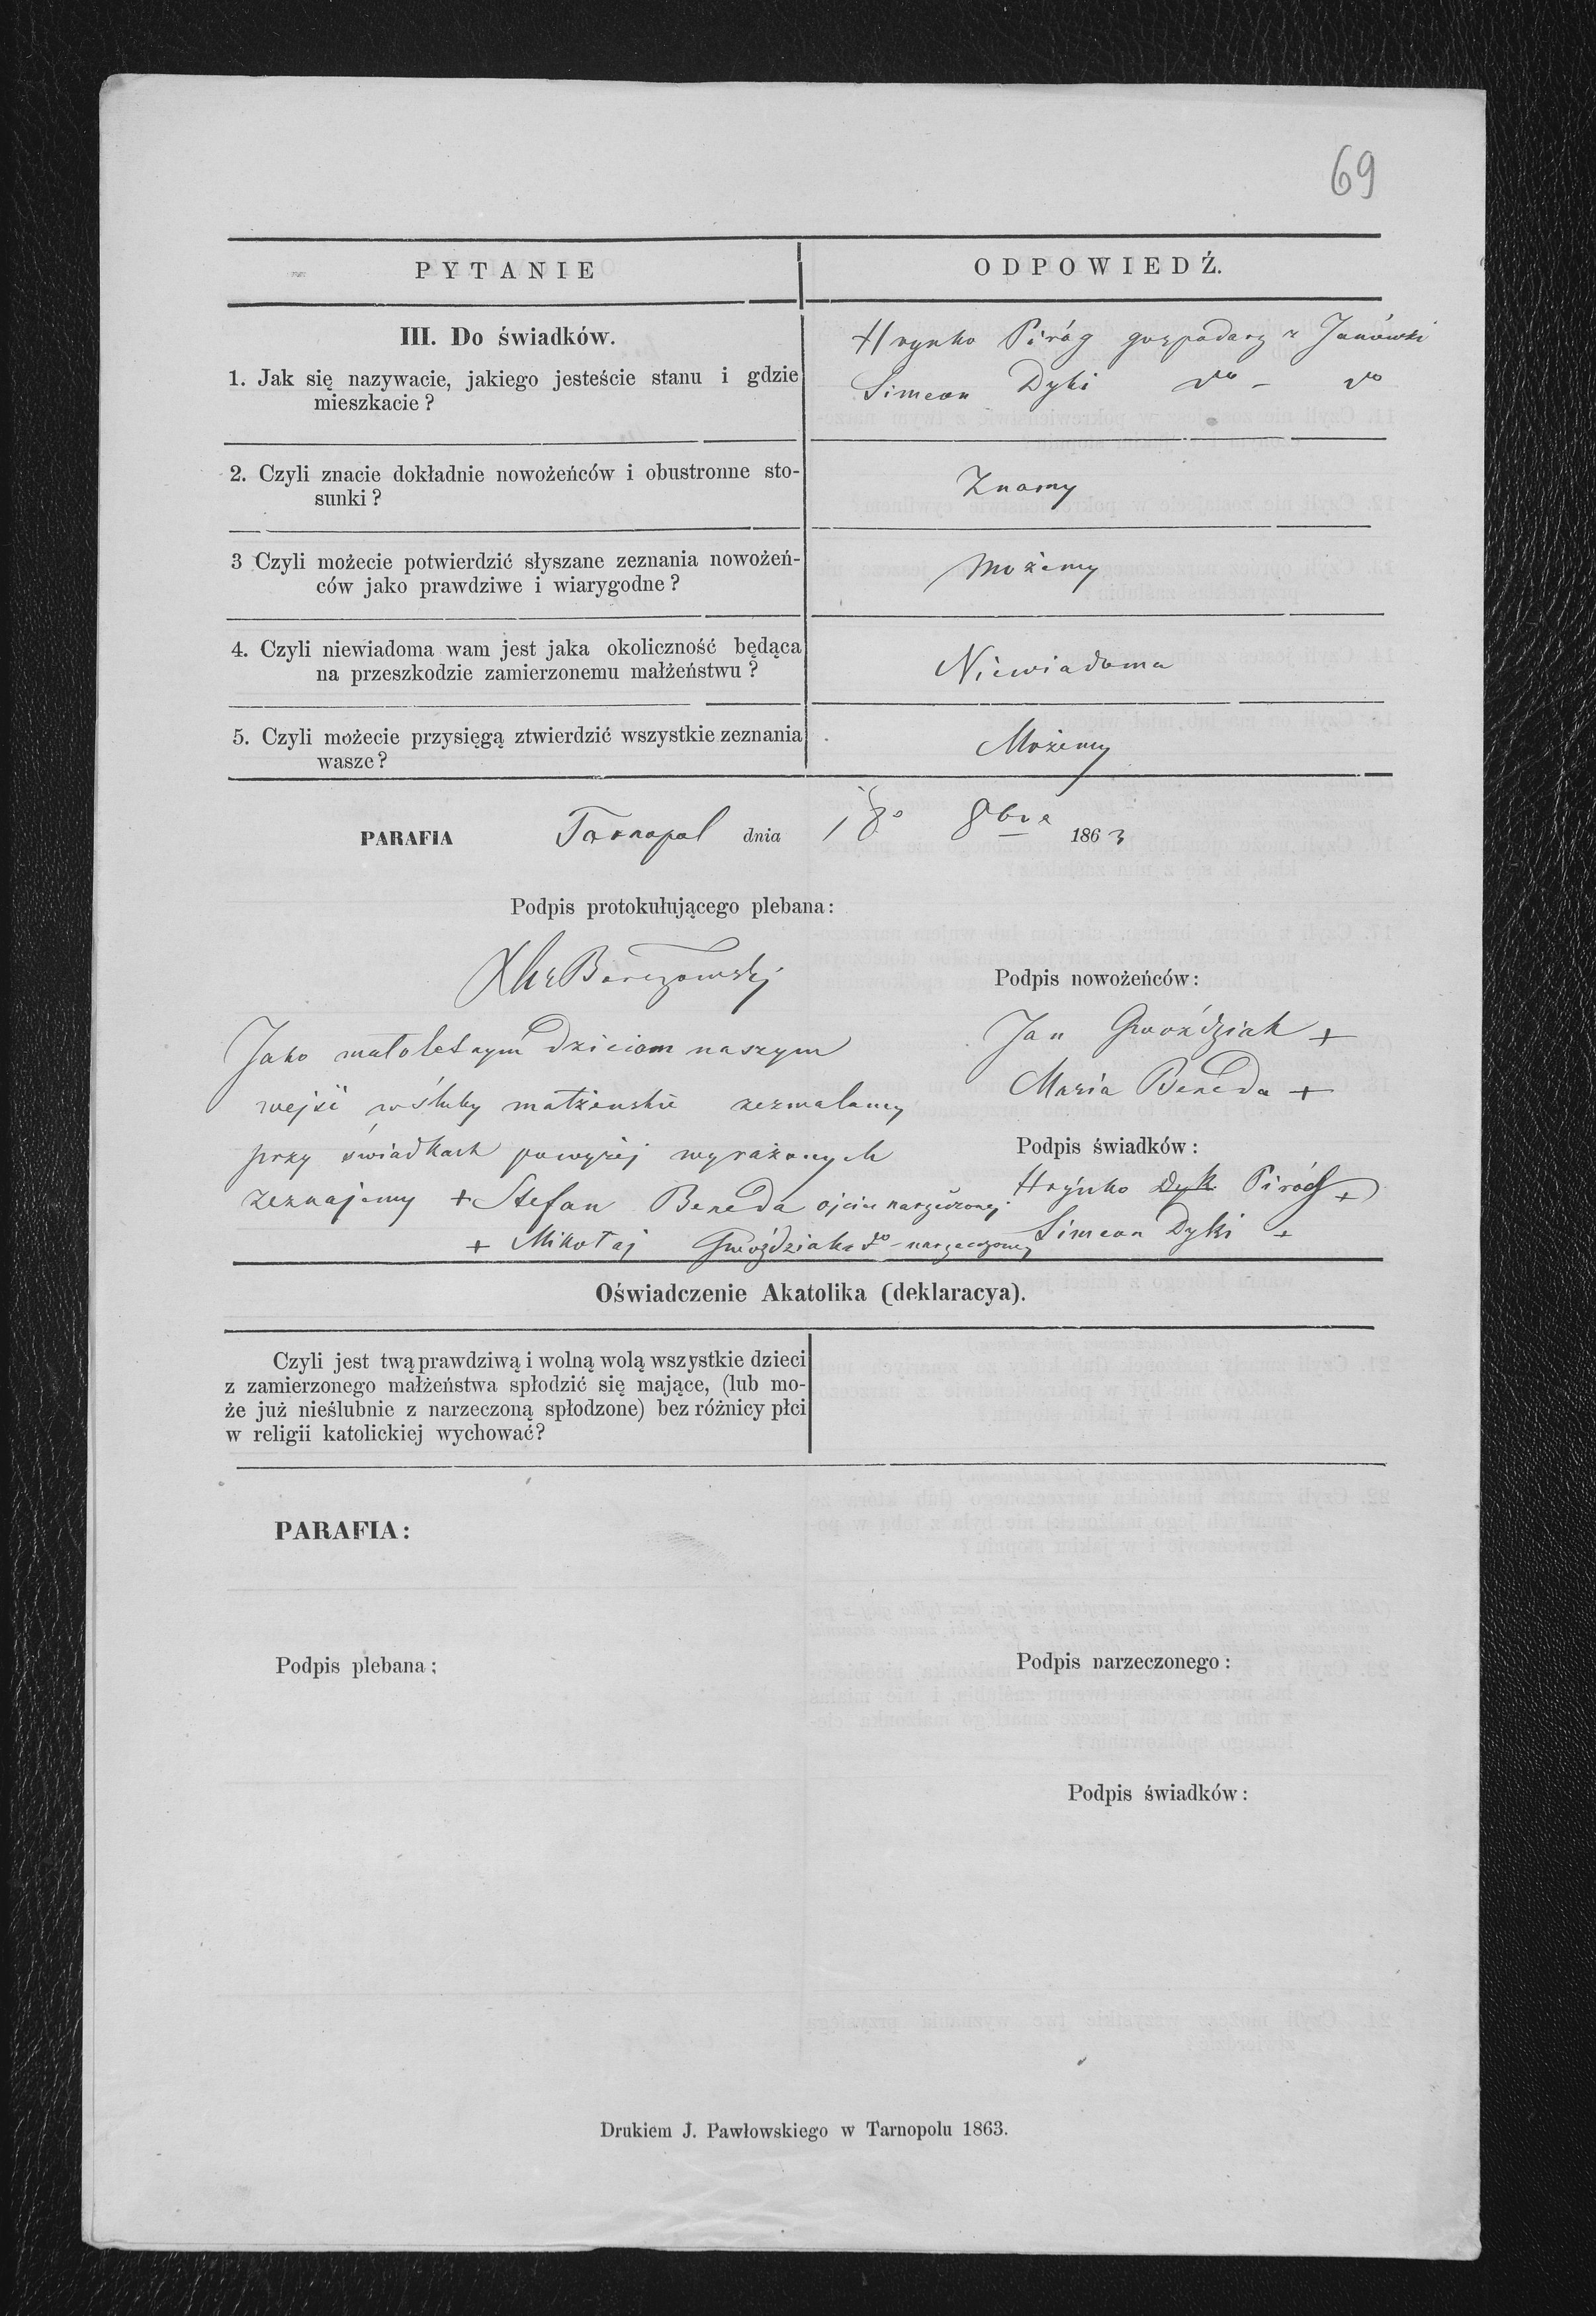 69
PYTANIE
ODPOWIEDŹ.
III. Do świadków.
1. Jak się nazywacie, jakiego jesteście stanu i gdzie
mieszkacie?
Hrynko Piróg gospodarz z Janówki
Simeon Dyki do - do
2. Czyli znacie dokładnie nowożeńców i obustronne sto-
sunki?
Znamy
3 Czyli możecie potwierdzić słyszane zeznania nowożeń-
ców jako prawdziwe i wiarygodne?
Możemy
4. Czyli niewiadoma wam jest jaka okoliczność będąca
na przeszkodzie zamierzonemu małżeństwu?
Niewiadoma
5. Czyli możecie przysięgą ztwierdzić wszystkie zeznania
wasze?
Możemy
PARAFIA Tarnopol dnia 18o 8bra 1863
Podpis protokułującego plebana:
Podpis nowożeńców:
Jan Gwoździak +
Maria Bereda +
Podpis świadków:
Hrynko Dyk Piróg +
Simeon Dyki +
Jako małoletnym dzieciom naszym
wejść w śluby małżeńskie zezwalamy
przy świadkach powyżej wyrażonych
zeznajemy + Stefan Bereda ojciec narzeczonej
+ Mikołaj Gwoździak do - narzeczonego
Oświadczenie Akatolika (deklaracya).
Czyli jest twą prawdziwą i wolną wolą wszystkie dzieci
z zamierzonego małżeństwa spłodzić się mające, (lub mo-
że już nieślubnie z narzeczoną spłodzone) bez różnicy płci
w religii katolickiej wychować?
PARAFIA:
Podpis plebana;
Podpis narzeczonego:
Podpis świadków:
Drukiem J. Pawłowskiego w Tarnopolu 1863.